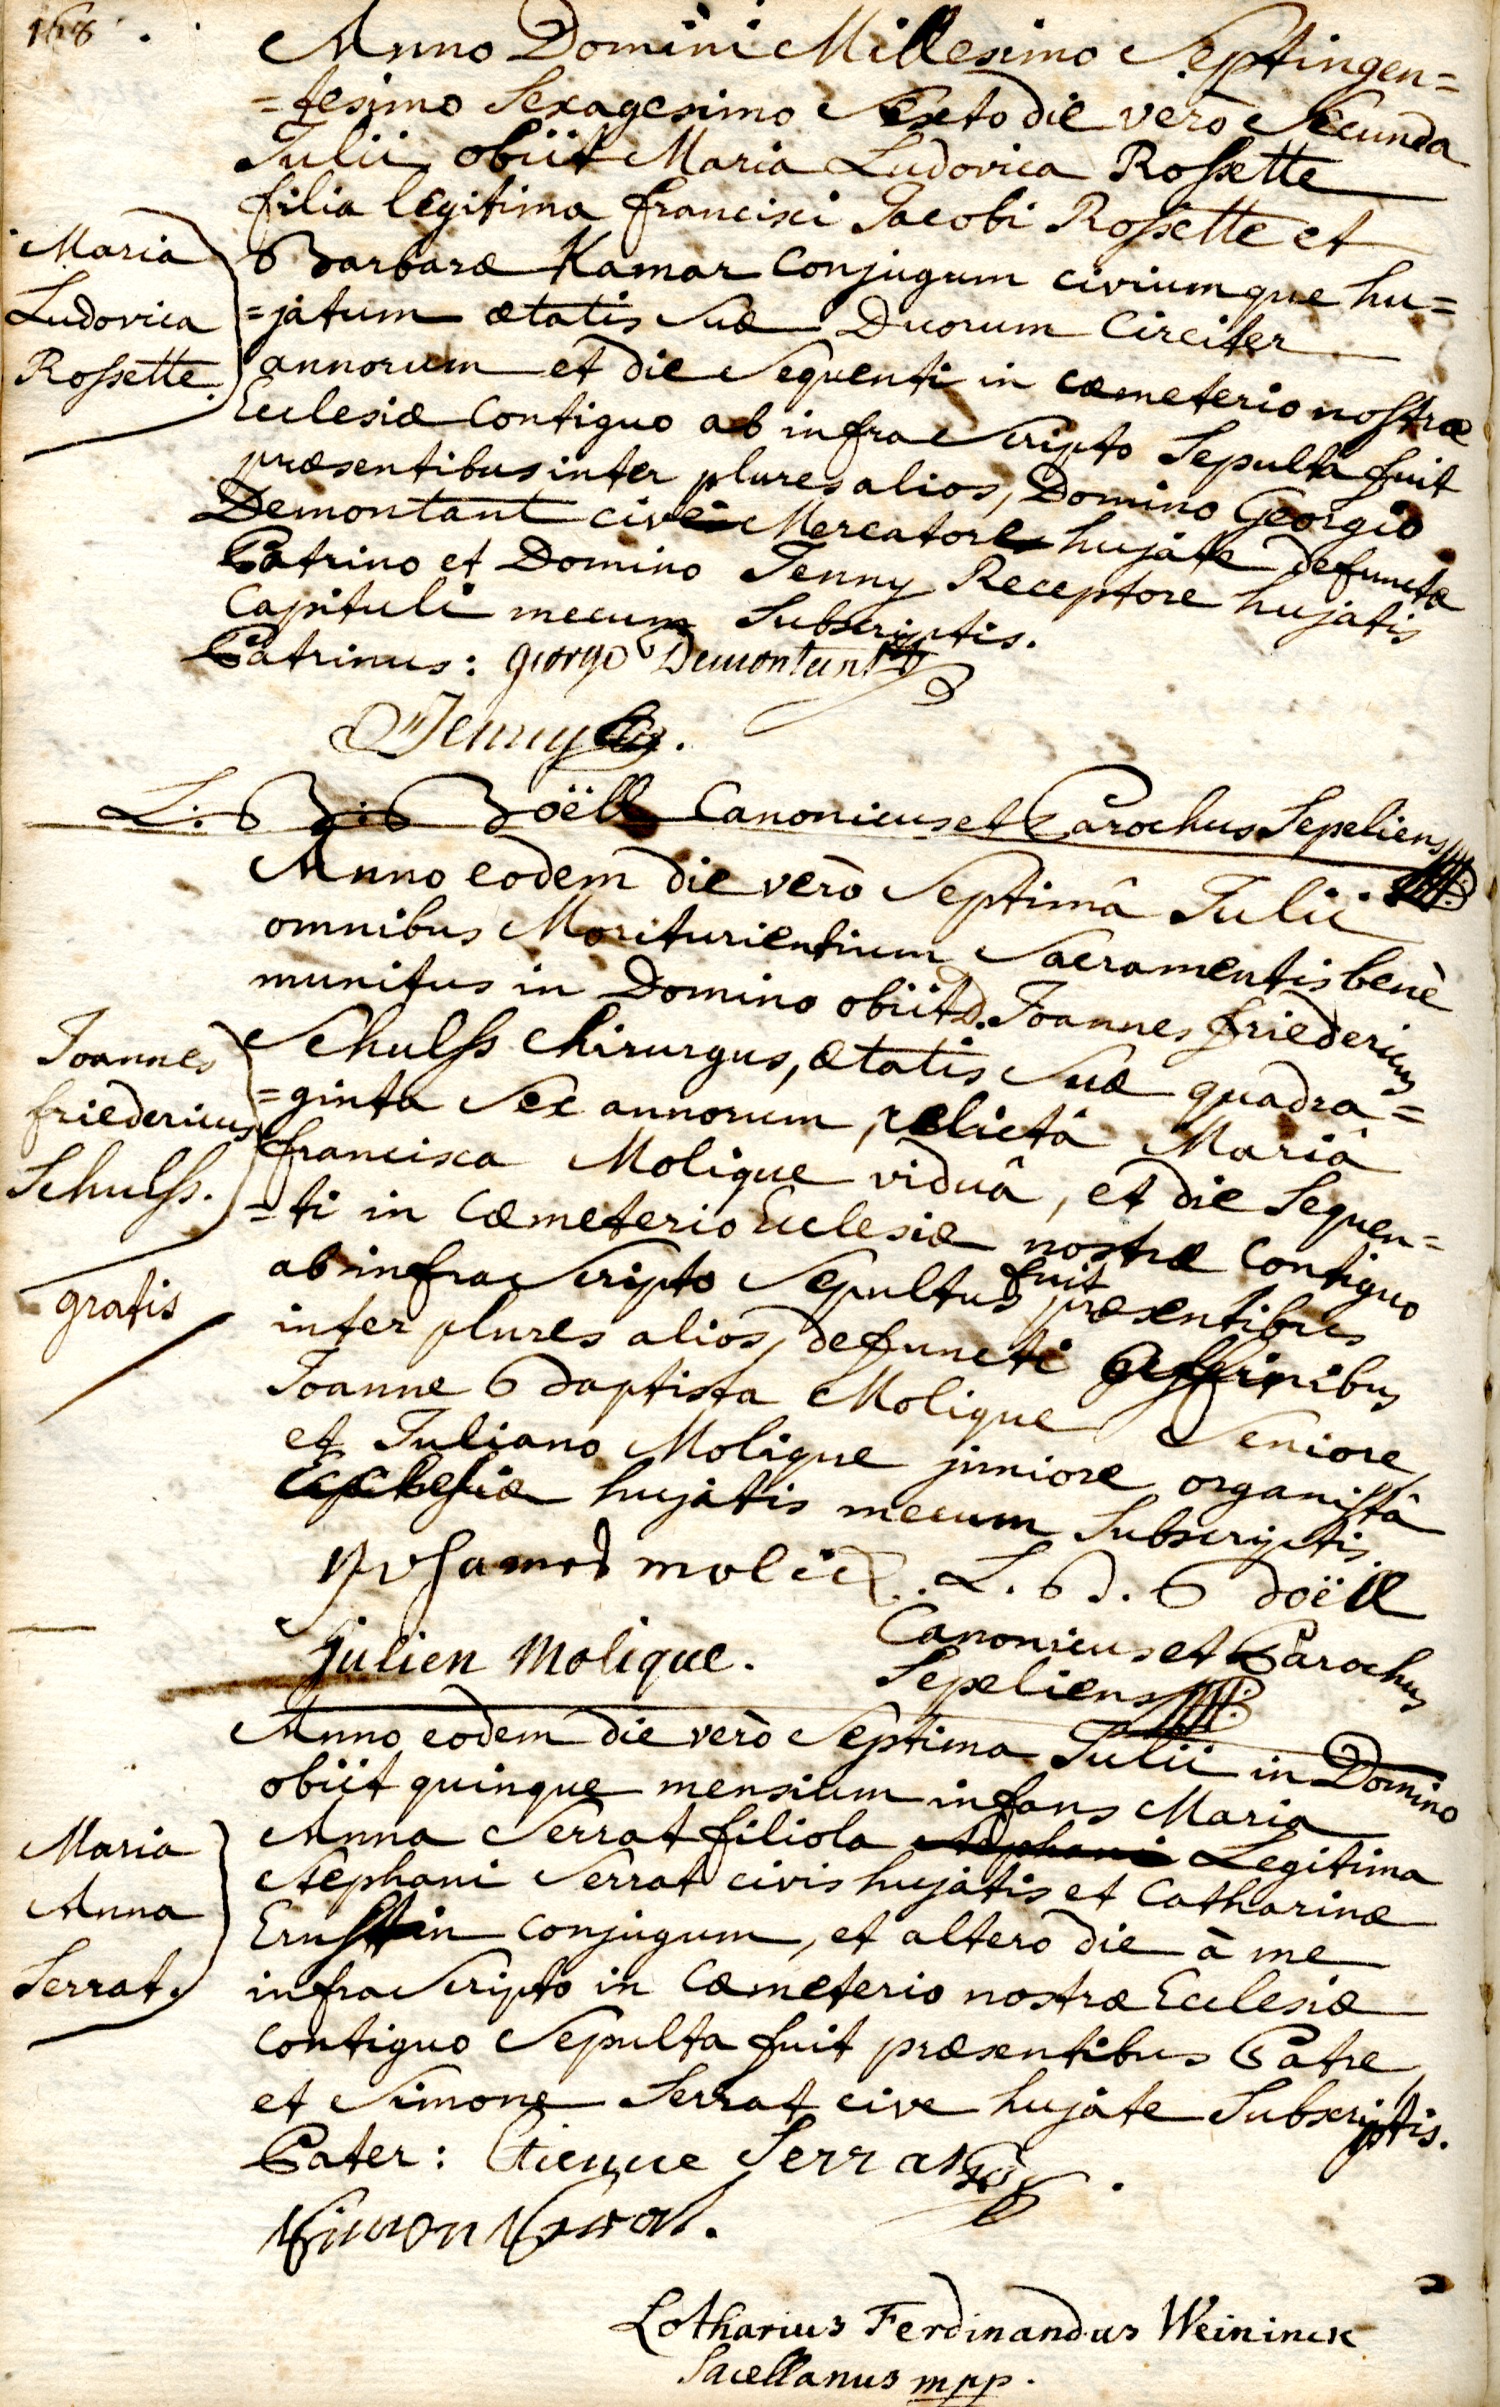 168.
Anno Domini Millesimo Septingen=
=tesimo Sexagesimo Sexto die verò Secunda
Julii obiit Maria Ludovica Rossette
filia legitima francisci Jacobi Rossette et
Maria
Ludovica
Rossette.
Barbaræ Kamar conjugum civiumque hu=
=jatum ætatis suæ Duorum Circiter
annorum et die sequenti in cæmeterio nostræ
Ecclesiæ Contiguo ab infra scripto Sepulta fuit
præsentibus inter plures alios, Domino Georgio
Demontant cive Mercatore hujate defunctæ
Patrino et Domino Jenny Receptore hujatis
Capituli mecum Subscriptis.
Patrinus: george Demontant
Jenny
L: B: Boëll Canonicus et Parochus Sepeliens
Anno eodem die verò Septimâ Julii
omnibus Moriturientium Sacramentis benè
munitus in Domino obiit D. Joannes friedericus
Joannes
friedericus
Schulss.
gratis
Schulss Chirurgus, ætatis suæ quadra=
=ginta Sex annorum, relictâ Mariâ
francisca Molique viduâ, et die Sequen=
=ti in Cæmeterio Ecclesiæ nostræ Contiguo
ab infra scripto Sepultus fuit præsentibus
inter plures alios, defuncti
Joanne Baptista Molique Seniore,
et Juliano Molique juniore organistâ
Ecclesiæ hujatis mecum Subscriptis.
L. B. Boëll
Canonicus et Parochus
Sepeliens
julien Molique.
Anno eodem die verò Septima Julii in Domino
obiit quinque mensium infans Maria
Maria
Anna
Serrat.
Anna Serrat filiola Stephani Legitima
Stephani Serrat civis hujatis et Catharinæ
Ernstin conjugum, et altero die à me
infra scripto in Cæmeterio nostræ Ecclesiæ
contiguo Sepulta fuit præsentibus Patre
et Simone Serrat cive hujate Subscriptis.
Pater: Etienne Serrat
Simon Serat.
Lotharius Ferdinandus Weininck
Sacellanus mpp.